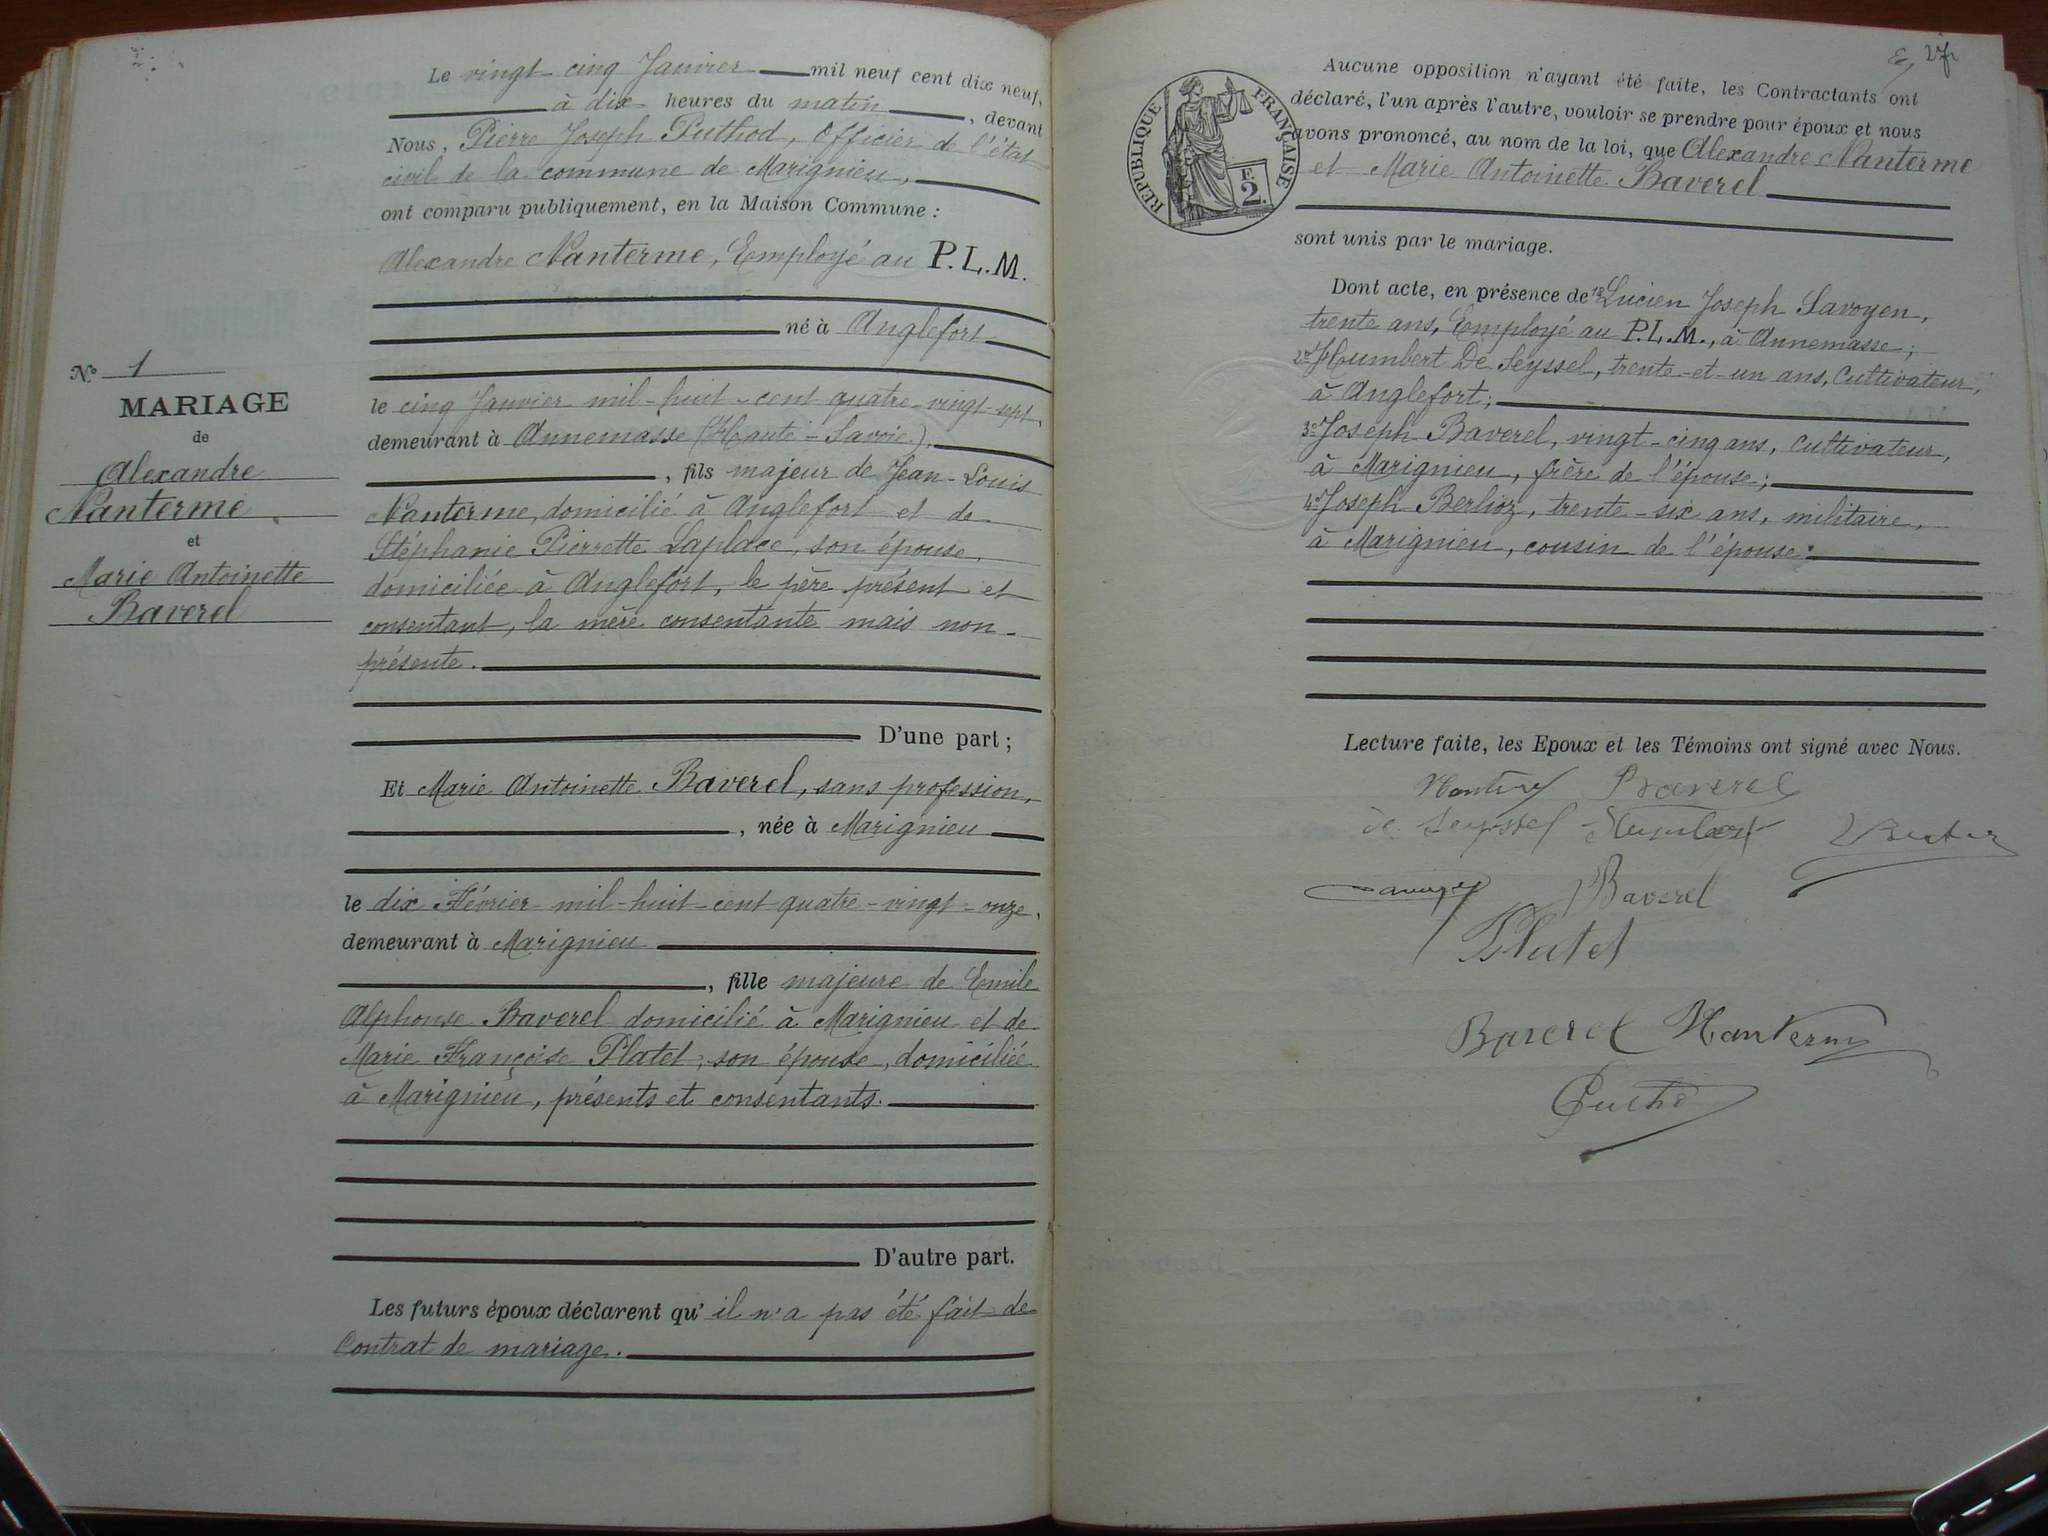 Le vingt-cinq Janvier mil neuf cent dix neuf,
à dix heures du matin, devant
Nous, Pierre Joseph Puthod, Officier de l'état
civil de la commune de Marignieu,
ont comparu publiquement, en la Maison Commune :
Alexandre Nanterme, Employé au P.L.M.
né à Anglefort
le cinq Janvier mil-huit-cent quatre-vingt-sept,
demeurant à Annemasse (Haute-Savoie),
, fils majeur de Jean-Louis
Nanterme, domicilié à Anglefort et de
Stéphanie Pierrette Laplace, son épouse,
domiciliée à Anglefort, le père présent et
consentant, la mère consentante mais non-
présente.
D'une part ;
Et Marie Antoinette Baverel, sans profession,
, née à Marignieu
le dix Février mil-huit-cent quatre-vingt-onze,
demeurant à Marignieu
, fille majeure de Emile
Alphonse Baverel domicilié à Marignieu et de
Marie Françoise Platel, son épouse, domiciliée
à Marignieu, présents et consentants.
D'autre part.
Les futurs époux déclarent qu'il n'a pas été fait de
Contrat de mariage.
N° 1
MARIAGE
de
Alexandre
Nanterme
et
Marie Antoinette
Baverel
RÉPUBLIQUE FRANÇAISE
F.
2.
Aucune opposition n'ayant été faite, les Contractants ont
déclaré, l'un après l'autre, vouloir se prendre pour époux et nous
avons prononcé, au nom de la loi, que Alexandre Nanterme
et Marie Antoinette Baverel
sont unis par le mariage.
Dont acte, en présence de 1° Lucien Joseph Savoyen,
trente ans, Employé au P.L.M., à Annemasse ;
2° Humbert De Seyssel, trente-et-un ans, Cultivateur,
à Anglefort ;
3° Joseph Baverel, vingt-cinq ans, Cultivateur,
à Marignieu, frère de l'épouse ;
4° Joseph Berlioz, trente-six ans, militaire,
à Marignieu, cousin de l'épouse.
Lecture faite, les Epoux et les Témoins ont signé avec Nous.
Baverel
de Seyssel Humbert
Baverel
Platel
Baverel Nanterme